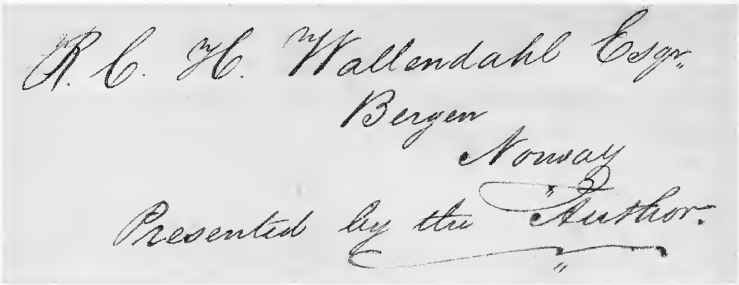 R. C. H. Wallendahl Esqr.
Bergen
Norway
Presented by the Author.